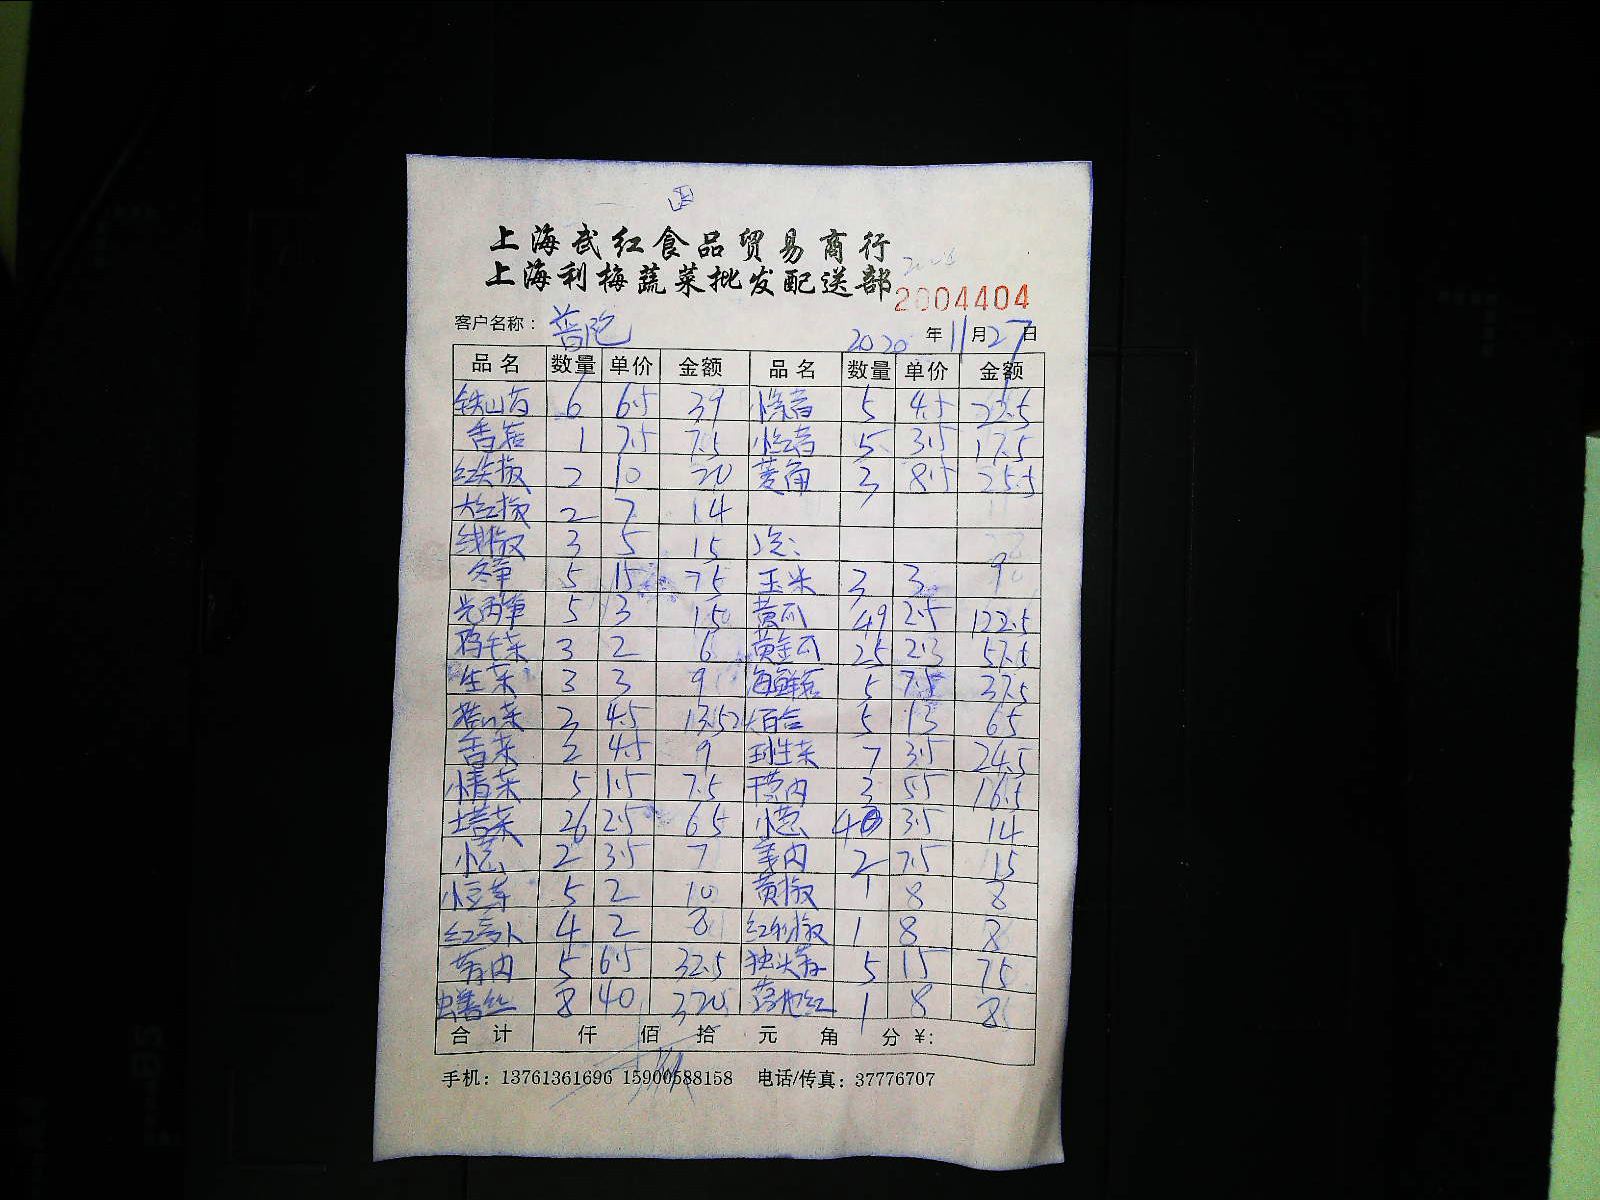 上海武红食品贸易商行
上海利梅蔬菜批发配送部
2004404
客户名称： 普陀 2020 年 11 月 27 日
品名 数量 单价 金额 品名 数量 单价 金额
铁山药 6 6.5 39 5 4.5 22.5
香菇 1 7.5 7.5 5 3.5 17.5
红尖椒 2 10 20 菱角 3 8.5 25.5
大红椒 2 7 14
线椒 3 5 15
冬笋 5 15 75 玉米 3 3 9
5 3 15 黄瓜 49 2.5 122.5
鸡毛菜 3 2 6 黄金瓜 25 2.3 57.5
生菜 3 3 9 海鲜菇 5 7.5 37.5
3 4.5 13.5 百合 5 13 65
苦菜 2 4.5 9 生菜 7 3.5 24.5
小青菜 5 1.5 7.5 3 5.5 16.5
塔菜 26 2.5 65 小葱 4 3.5 14
小葱 2 3.5 7 2 7.5 15
小豆芽 5 2 10 黄椒 1 8 8
红萝卜 4 2 8 红椒 1 8 8
5 6.5 32.5 独头蒜 5 15 75
鳝丝 8 40 320 落地红 1 8 8
合计 仟 佰 拾 元 角 分 ¥:
手机：13761361696 15900588158 电话/传真：37776707